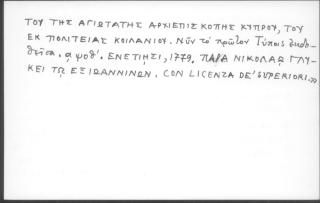 ΤΟΥ ΤΗΣ ΑΓΙΩΤΑΤΗΣ ΑΡΧΙΕΠΙΣΚΟΠΗΣ ΚΥΠΡΟΥ, ΤΟΥ
ΕΚ ΠΟΛΙΤΕΙΑΣ ΚΟΙΛΑΝΙΟΥ. Νῦν τὸ πρῶτον Τύποις ἐκδο-
θεῖσα. ͵αψοθ´. ΕΝΕΤΙΗΣΙ, 1779. ΠΑΡΑ ΝΙΚΟΛΑΩ ΓΛΥ-
ΚΕΙ ΤΩ ΕΞ ΙΩΑΝΝΙΝΩΝ. CON LICENZA DE' SUPERIORI.»